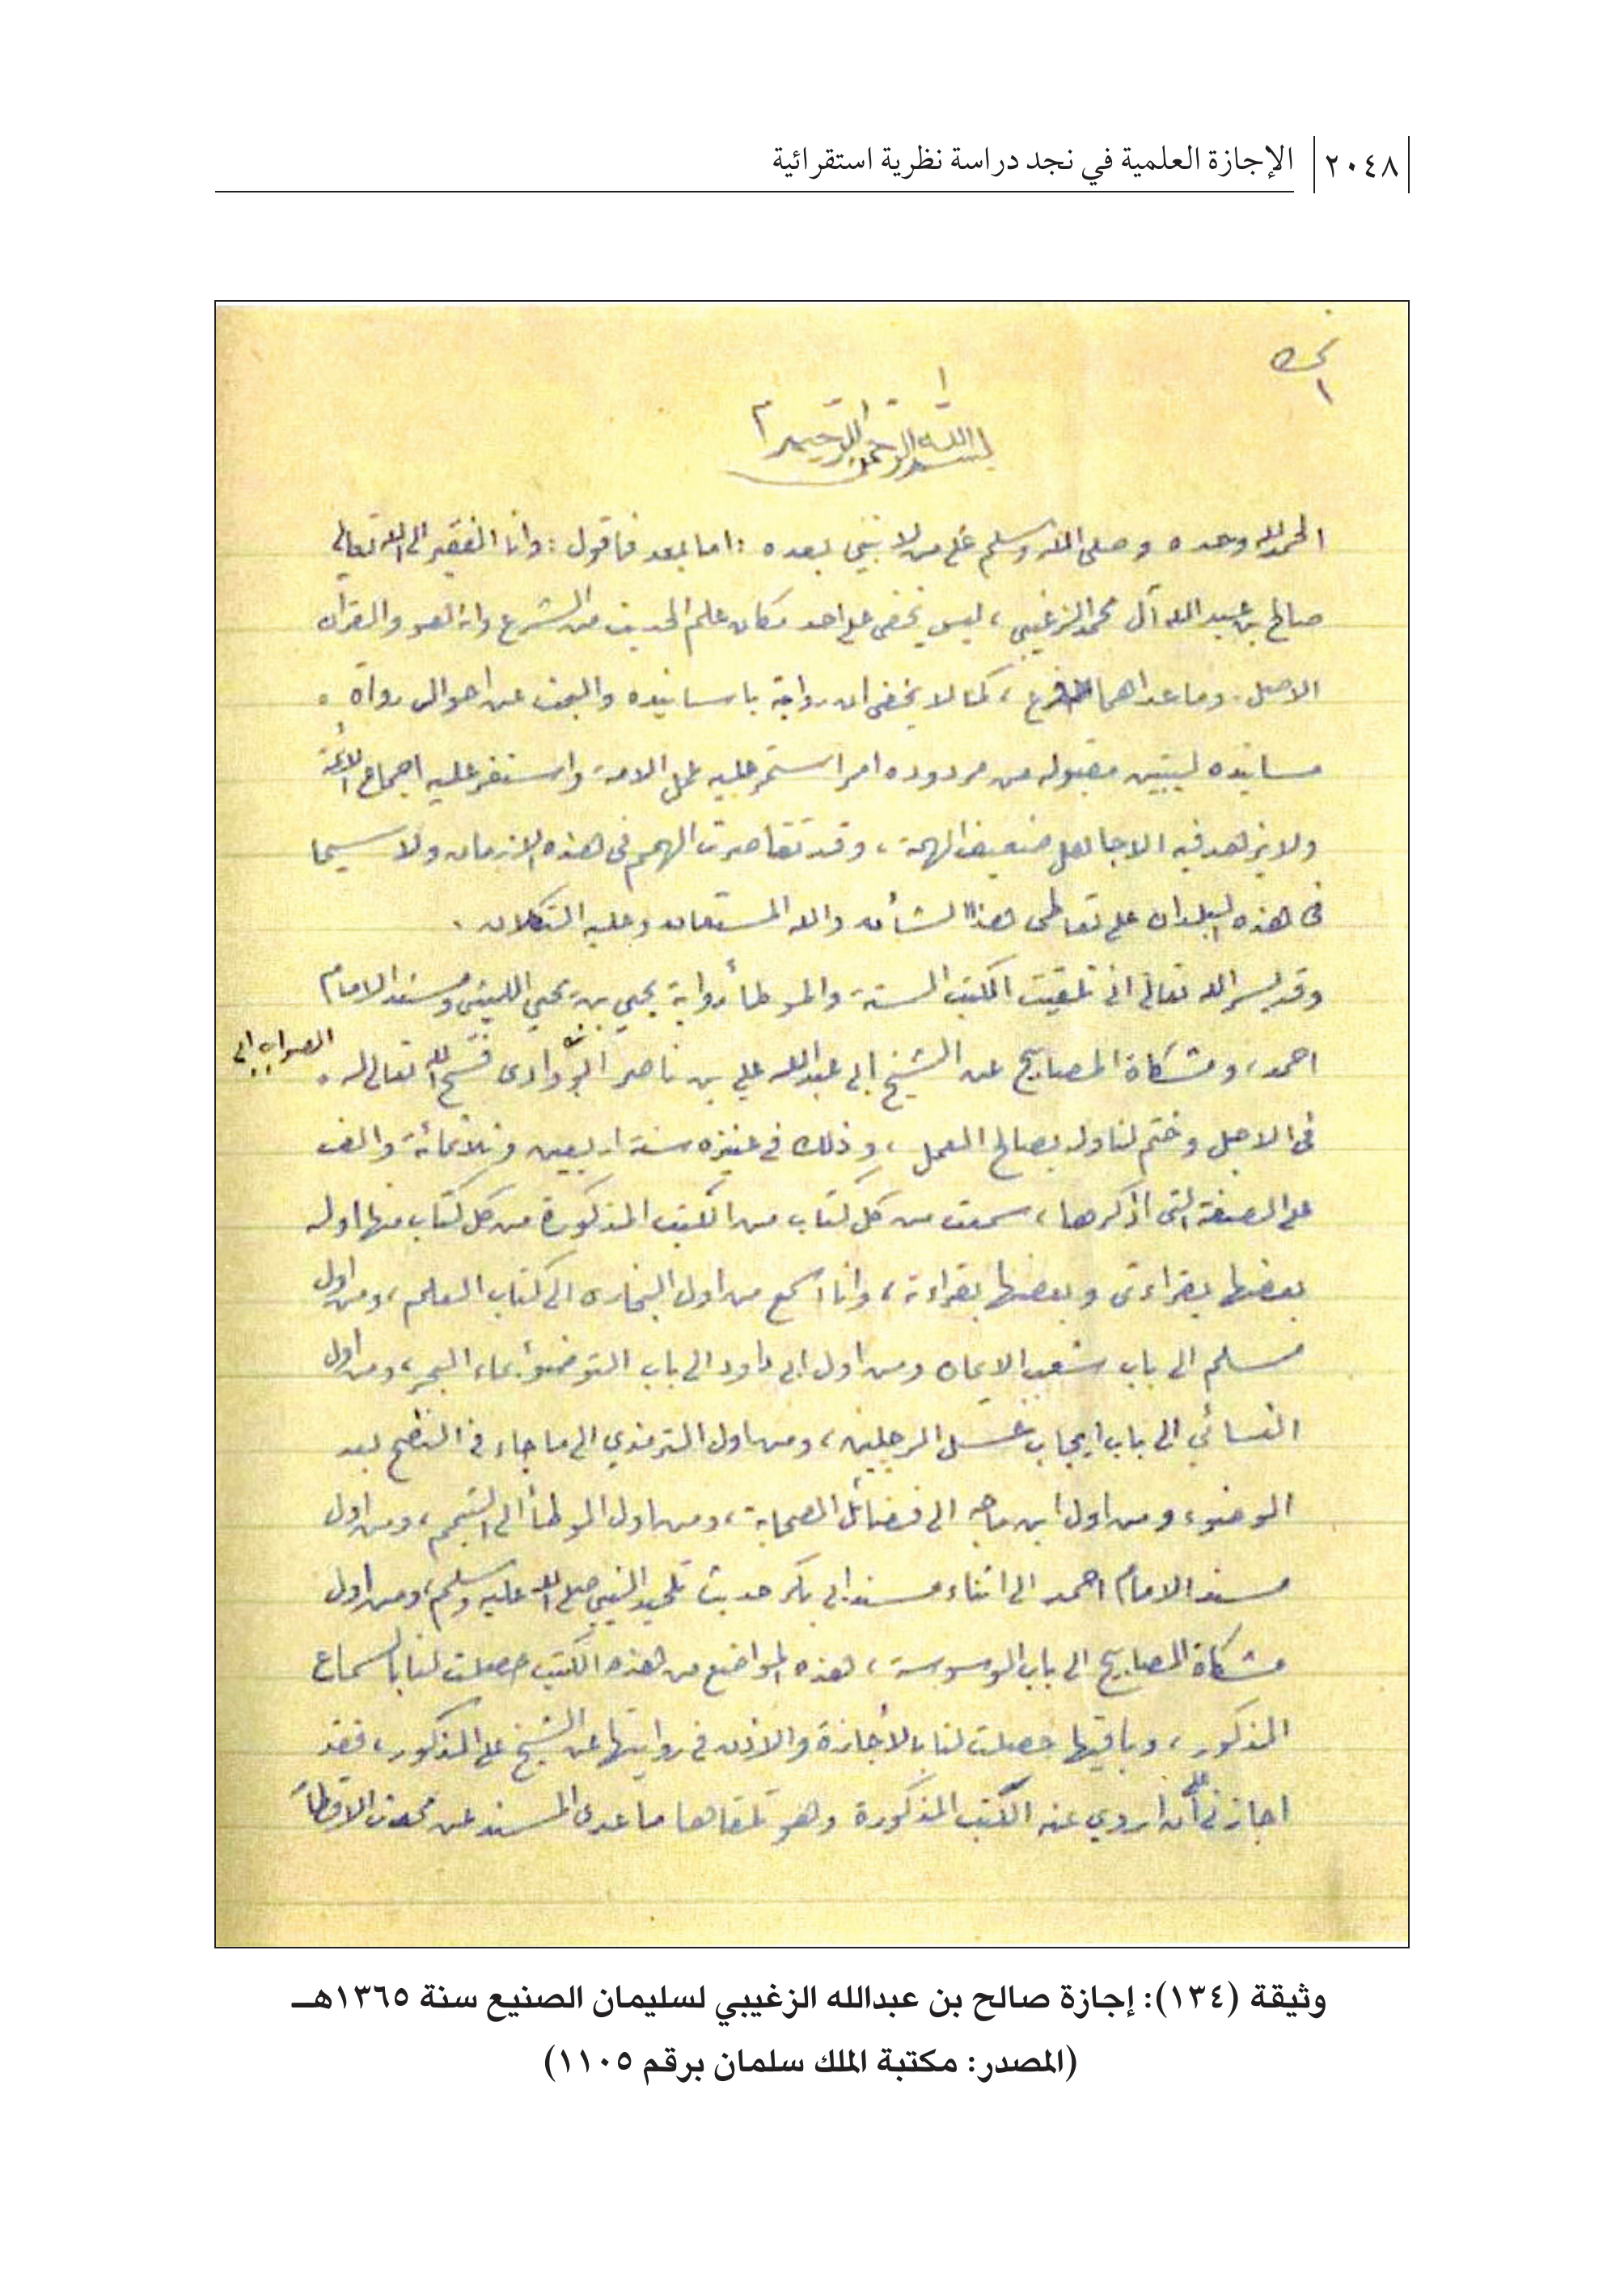 ٢٠٤٨ الإجازة العلمية في نجد دراسة نظرية استقرائية
١
بسم الله الرحمن الرحيم
الحمد لله وحده وصلى الله وسلم على من لا نبي بعده : اما بعد فاقول : وانا الفقير الى الله تعالى
صالح بن عبد الله آل محمد الزغيبي ، ليس يخفى على احد مكان علم الحديث من الشرع وانه هو والقرآن
الاصل . وما عداهما فرع ، كما لا يخفى ان رواية باسانيده والبحث عن احوال رواة
مسانيده ليتبين مقبوله من مردوده امر استمر عليه عمل الامة واستقر عليه اجماع الائمة
ولا يزهد فيه الا جاهل ضعيف الهمة ، وقد تقاصرت الهمم فى هذه الازمان ولا سيما
فى هذه البلدان على تعاطى هذا الشأن والله المستعان وعليه التكلان .
وقد يسر الله تعالى انى تلقيت الكتب الستة والموطأ رواية يحيى بن يحيى الليثى ومسند الامام
احمد ، ومشكاة المصابيح عن الشيخ ابى عبد الله علي بن ناصر ابو وادى فسح الله تعالى له الصواب ابى
فى الاجل وختم لنا وله بصالح العمل ، وذلك في عنيزه سنة اربعين وثلاثمائة والف
على الصفة التى اذكرها ، سمعت من كل كتاب من الكتب المذكورة من كل كتاب منها اوله
بعضها بقراءتى وبعضها بقراءة ، وانا اسمع من اول البخارى الى كتاب العلم ، ومن اول
مسلم الى باب شعب الايمان ومن اول ابى داود الى باب التوضؤ بماء البحر ، ومن اول
النسائي الى باب ايجاب غسل الرجلين ، ومن اول الترمذي الى ما جاء في النضح بعد
الوضوء ومن اول ابن ماجه الى فضائل الصحابة ، ومن اول الموطأ الى التيمم ، ومن اول
مسند الامام احمد الى اثناء مسند ابى بكر حديث النبي صلى الله عليه وسلم ، ومن اول
مشكاة المصابيح الى باب الوسوسة ، هذه المواضع من هذه الكتب حصلت لنا بالسماع
المذكور ، وباقيها حصلت لنا بالاجازة والاذن في روايتها عن الشيخ على المذكور ، فقد
اجازني أن اروي عنه الكتب المذكورة وهو تلقاها ما عدى المسند عن محدث الاقطار
وثيقة (١٣٤): إجازة صالح بن عبدالله الزغيبي لسليمان الصنيع سنة ١٣٦٥هـ
(المصدر: مكتبة الملك سلمان برقم ١١٠٥)